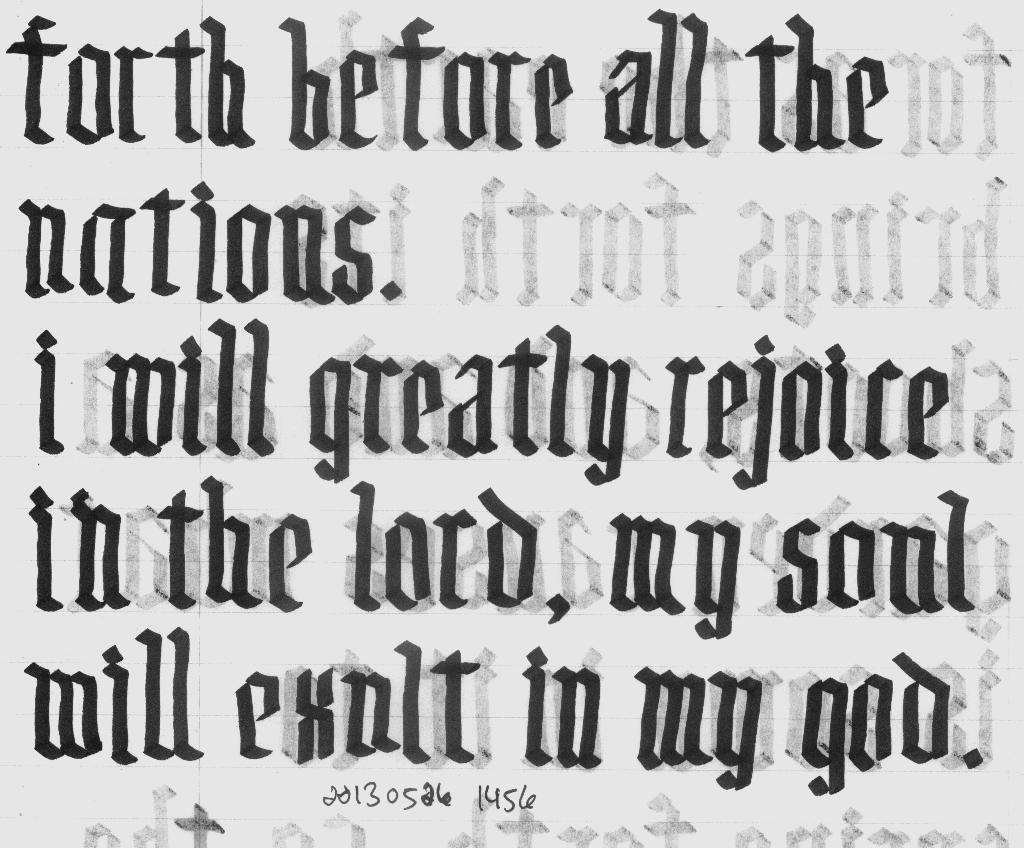 forth before all the
nations.
i will greatly rejoice
in the lord, my soul
will exult in my god.
20130526 1456